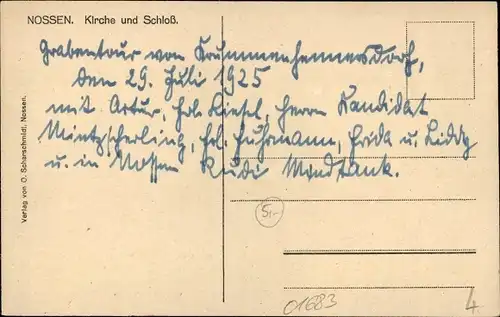 NOSSEN. Kirche und Schloß.
Grabentour von Krummenhennersdorf,
den 29. Juli 1925
mit Artur, Frl. Kiesel, Herrn Kandidat
Mintzscherling, Frl. Fuhrmann, Frida u. Liddy
u. in Nossen Rudi Mondtank.
Verlag von O. Scharschmidt, Nossen.
5,-
01683
4